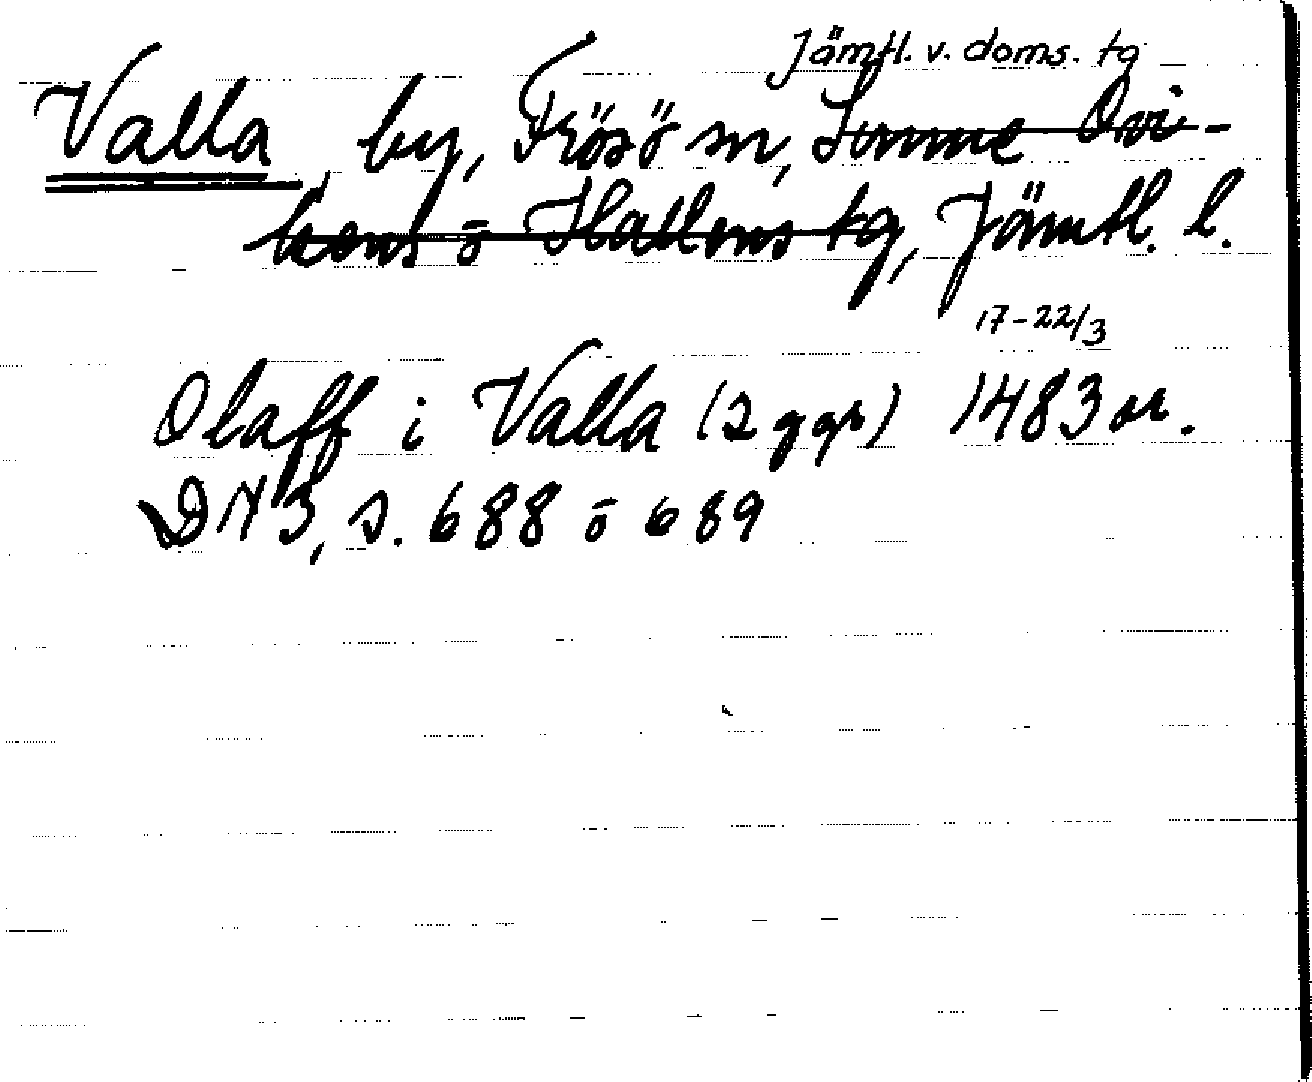 Jämtl. v. doms. tg
Valla by, Frösö sn, Sunne Ovi-
kens o Hallens tg, Jämtl. l.
17-22/3
Olaff i Valla (2 ggr) 1483 or.
DN 3, s. 688 o 689